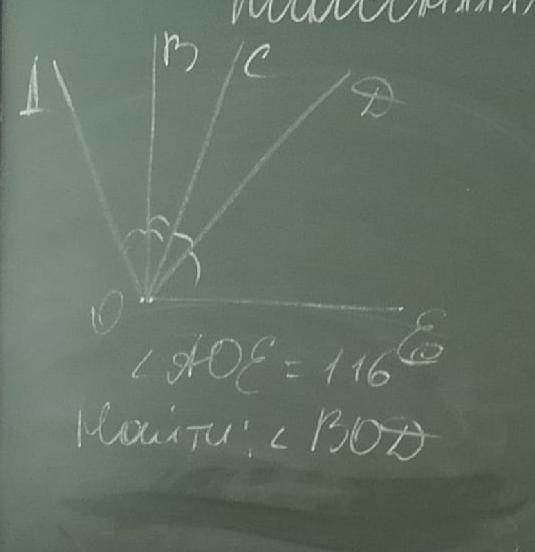 A
B
C
D
O
E
∠AOE = 116
Найти: ∠ BOD